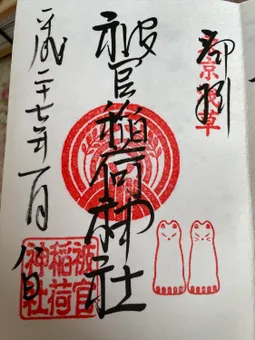 東京浅草
被官稲荷神社
平成二十七年一月
被官
稲荷
神社